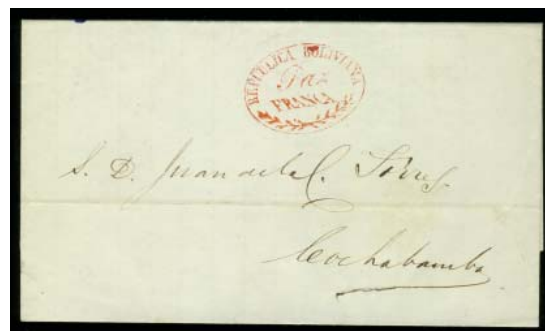 REPUBLICA BOLIVIANA
Paz
FRANCA
S. D. Juan de la C.
Cochabamba